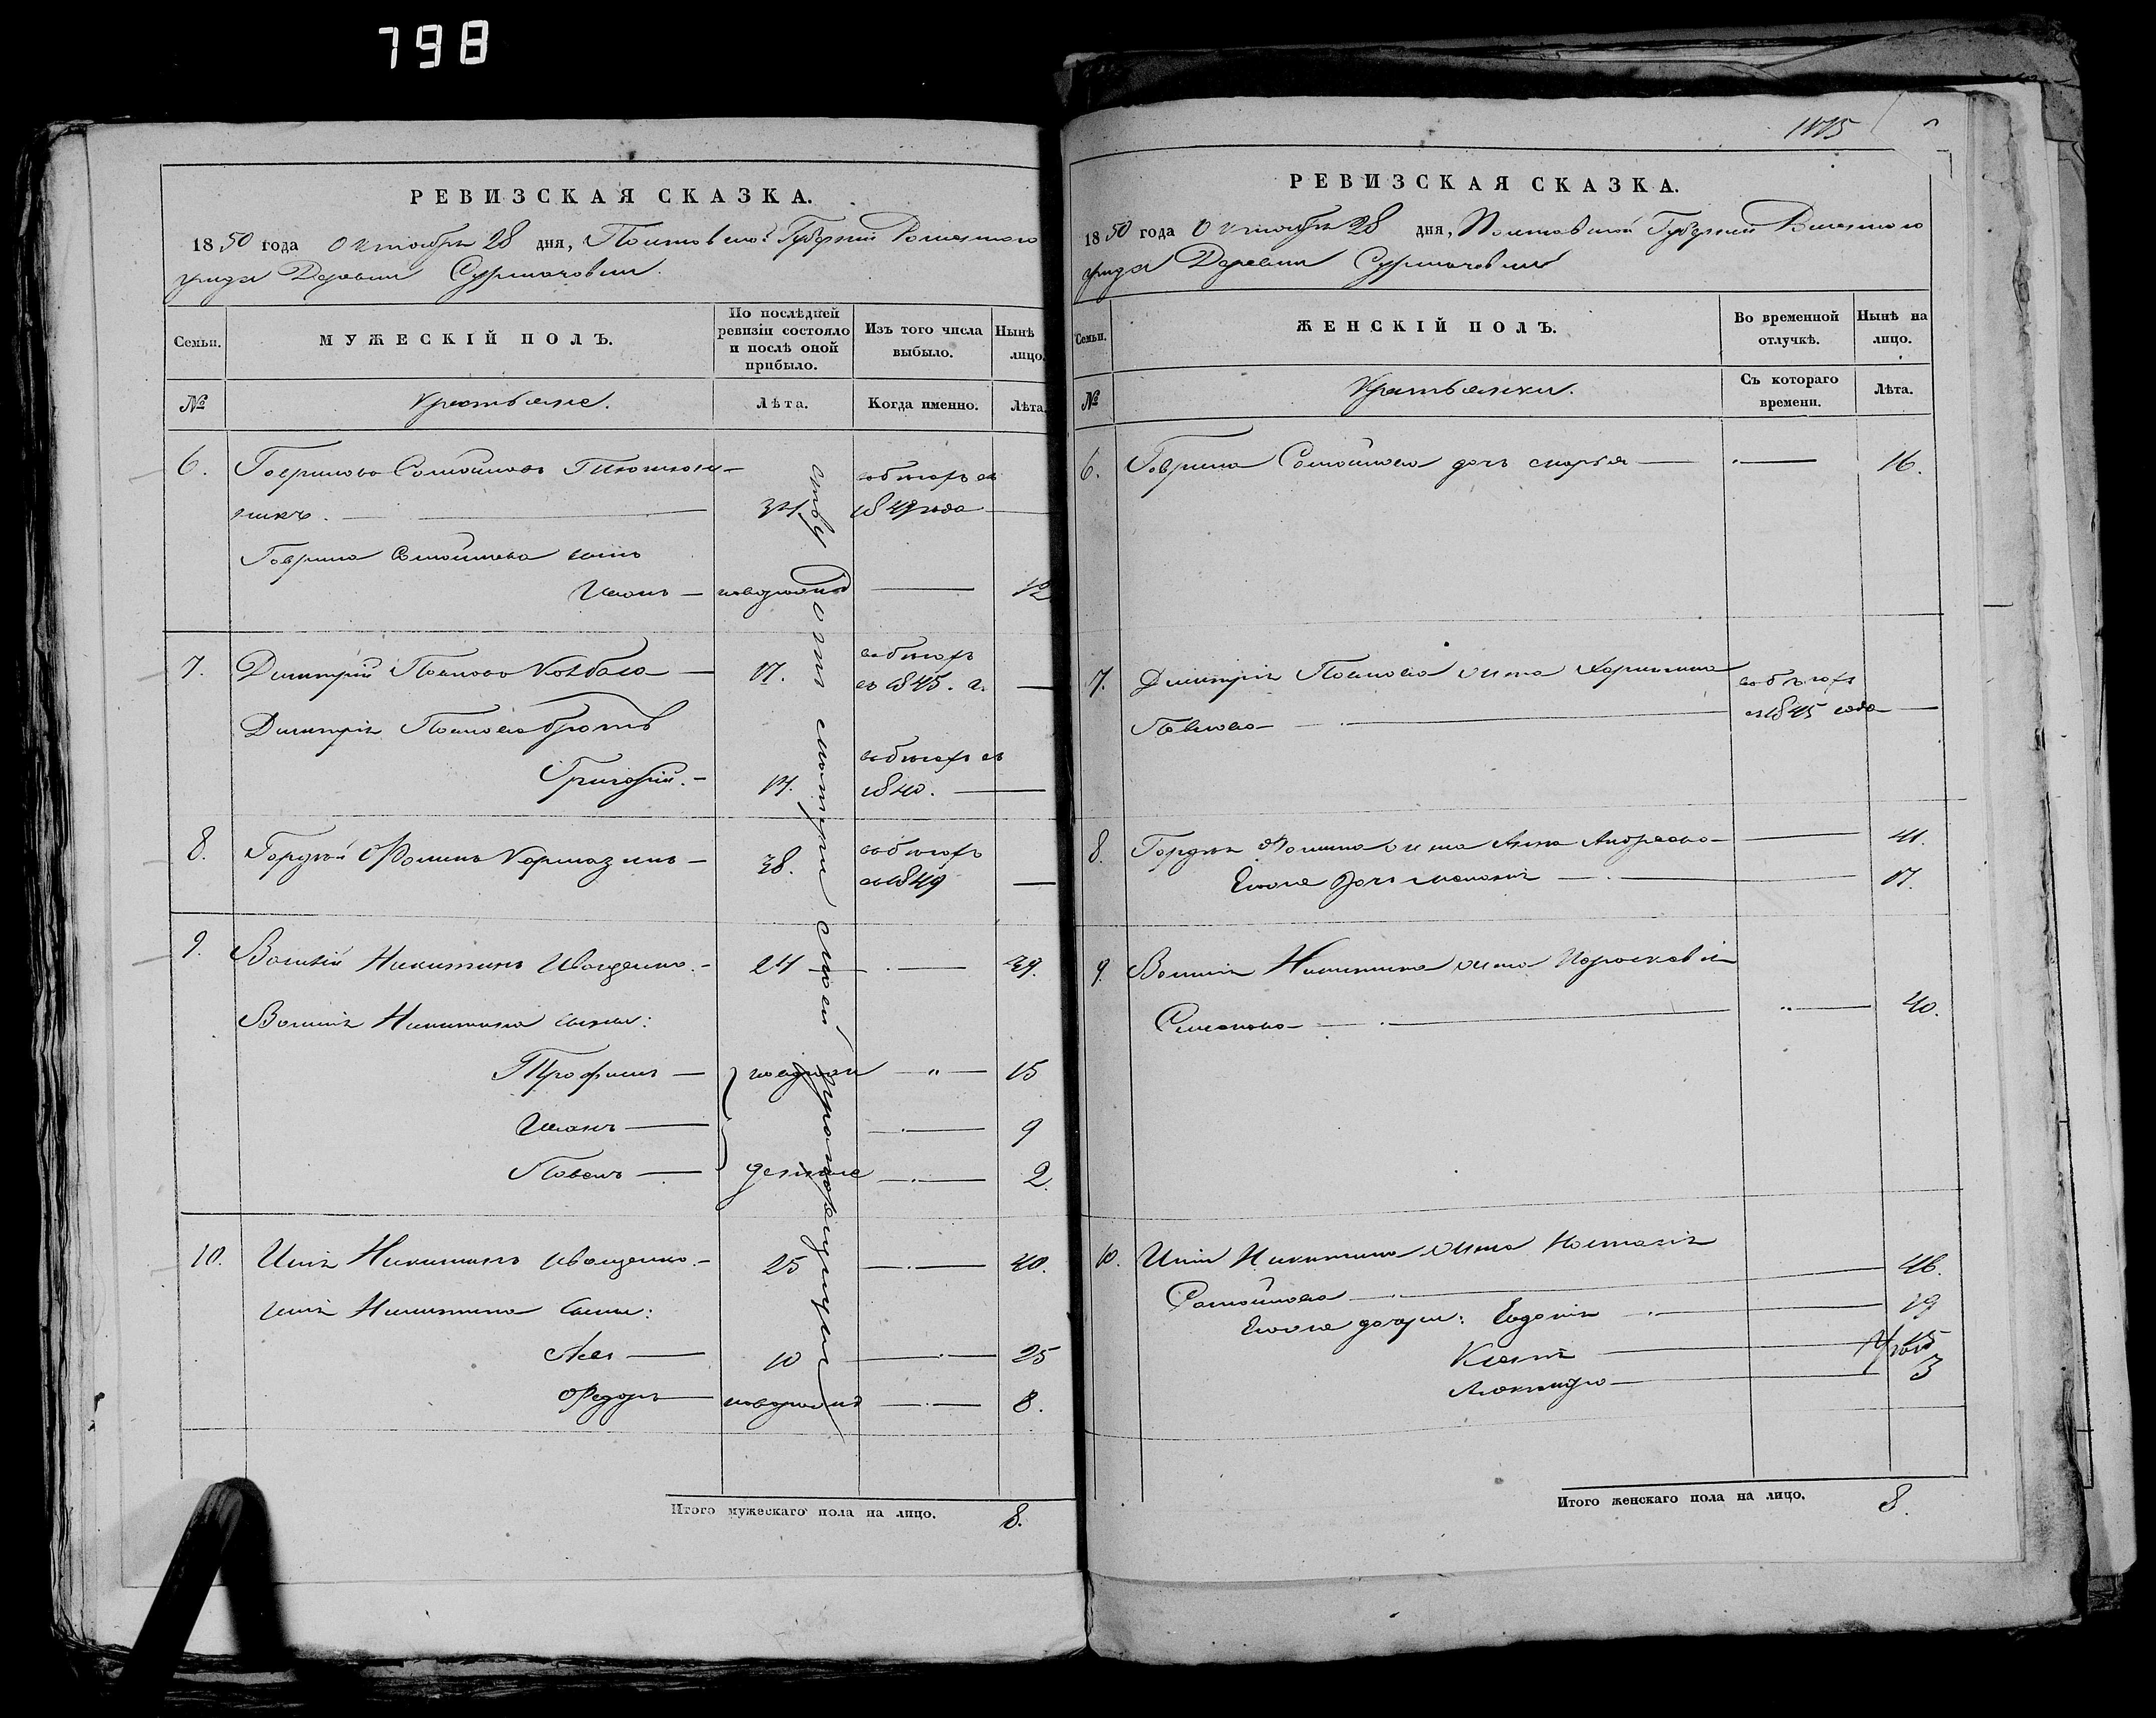 798
РЕВИЗСКАЯ СКАЗКА.
1850 года Октября 28 дня, Полтавской Губернии Роменского
уезда Деревни Сурмачовки.
Семьи.
МУЖЕСКІЙ ПОЛЪ.
По послѣдней ревизіи состояло и послѣ оной прибыло.
Изъ того числа выбыло.
Нынѣ лицо.
№
Крестьяне.
Лѣта.
Когда именно.
Лѣта.
6. Гаврило Самойловъ
34
въ бегахъ съ
1849 года
Гаврила Самойлова сынъ
Иванъ — новорожд — 12
7. Дмитрій Павловъ Ковбаса — 17.
въ бегахъ
съ 1845. г.
Дмитрія Павлова братъ
Григорій. — 14.
въ бегахъ съ
1840.
8. Гордѣй Фоминъ Кармазинъ — 38.
въ бегахъ
съ 1849
9. Василій Никитинъ Иващенко. — 24 — 39.
Василія Никитина сыны:
Трофимъ — новорож — " — 15
Иванъ — 9
Павелъ — денные — 2.
10. Илья Никитинъ Иващенко. — 25 — 40.
Ильи Никитина сыны:
Лев — 10 — 25
Федоръ — новорожд — 8.
Итого мужескаго пола на лицо. 8.
1175
РЕВИЗСКАЯ СКАЗКА.
1850 года Октября 28 дня, Полтавской Губернии Роменского
уезда Деревни Сурмачовки
Семьи.
ЖЕНСКІЙ ПОЛЪ.
Во временной отлучкѣ.
Нынѣ на лицо.
№
Крестьянки.
Съ котораго времени.
Лѣта.
6. Гаврила Самойлова дочь Марья — 16.
7. Дмитрія Павлова жена
Павлова
въ бегахъ
съ 1845 года
8. Гордѣя Фомина жена Анна Андреева — 41.
Его же дочь Меланія — 17.
9. Василія Никитина жена Парасковія
Семенова — 40.
10. Ильи Никитина жена Наталія
Самойлова — 46.
Его же дочери: Евдокія — 19
15
3
Итого женскаго пола на лицо. 8.